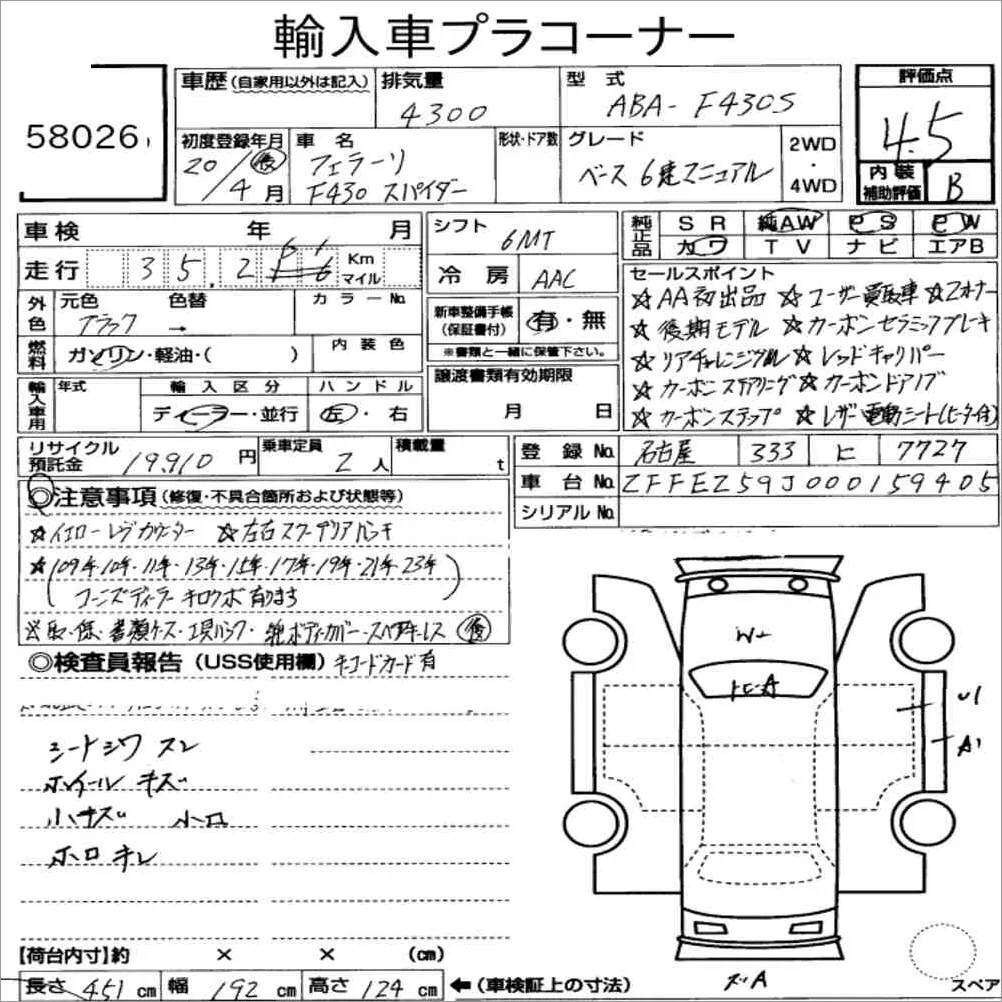 輸入車プラコーナー
58026
車歴(自家用以外は記入) 排気量 4300 型式 ABA-F430S 評価点 4.5
初度登録年月 20/4月 車名 フェラーリ F430 スパイダー 形状・ドア数 グレード ベース 6速マニュアル 2WD・4WD 内装補助評価 B
車検 年 月 シフト 6MT 純正品 SR 純AW PS PW
カワ TV ナビ エアB
走行 35,2 Km マイル 冷房 AAC
セールスポイント
☆AA初出品 ☆ユーザー買取車 ☆2オナー
☆後期モデル ☆カーボンセラミックブレーキ
☆リアチャレンジグリル ☆レッドキャリパー
☆カーボンステアリング ☆カーボンドアノブ
☆カーボンステップ ☆レザー電動シート(ヒーター付)
外色 元色 ブラック 色替 → カラーNo. 新車整備手帳(保証書付) 有・無
※書類と一緒に保管下さい。
燃料 ガソリン・軽油・( ) 内装色
輸入車用 年式 輸入区分 ディーラー・並行 ハンドル 左・右 譲渡書類有効期限 月 日
リサイクル預託金 19,910円 乗車定員 2人 積載量 t
登録No. 名古屋 333 ヒ 7727
車台No. ZFFEZ59J000159405
シリアルNo.
◎注意事項(修復・不具合箇所および状態等)
☆イエローレブカウンター ☆左右スクーデリアバッチ
☆(09年・10年・11年・13年・15年・17年・19年・21年・23年
コーンズディーラーキロクボ有ります)
※取・保・書類ケース・工具バック・純ボディカバー・スペアキーレス 後
◎検査員報告(USS使用欄) キーコードカード有
シートシワ スレ
ホイール キズ
小キズ 小凹
ホロ キレ
W+
トビA
U1
A1
ズA
スペア
【荷台内寸】約 × × (cm)
長さ 451 cm 幅 192 cm 高さ 124 cm ←(車検証上の寸法)